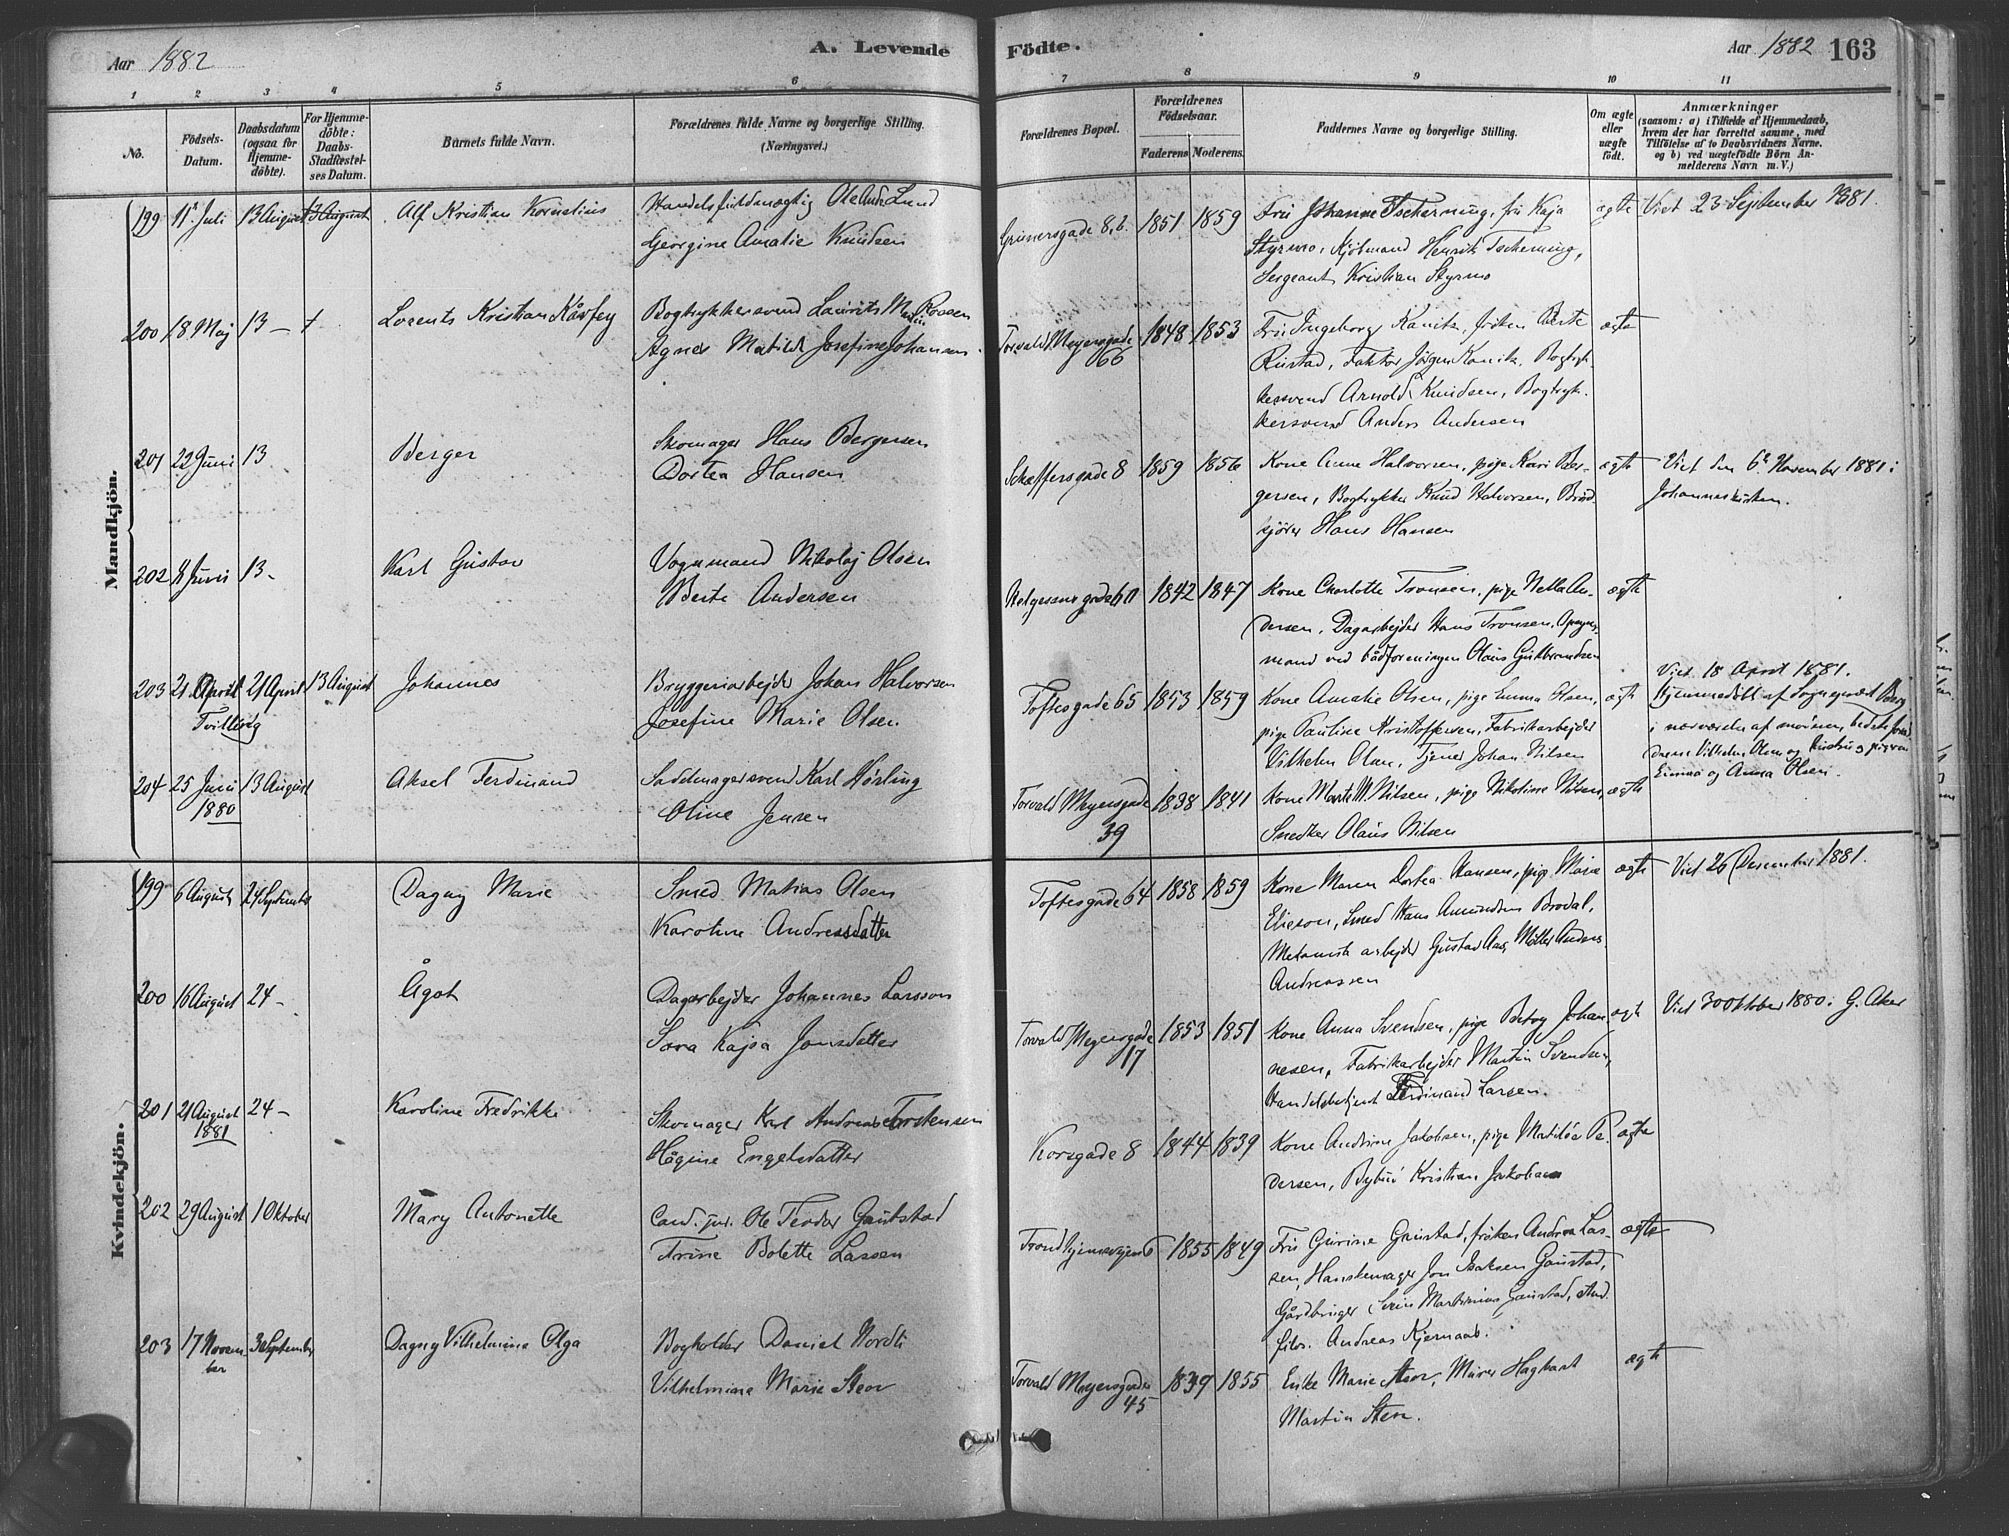 Aar 1882
A. Levende
Födte.
Aar 1882
163
1 2 3 4 5 6 7 8 9 10 11
No.
Födsels-Datum.
Daabsdatum (ogsaa for Hjemme-döbte).
For Hjemme-döbte: Daabs-Stadfæstel-ses Datum.
Barnets fulde Navn.
Forældrenes fulde Navne og borgerlige Stilling. (Næringsvei.)
Forældrenes Bopæl.
Forældrenes Födselsaar.
Faderens Moderens.
Faddernes Navne og borgerlige Stilling.
Om ægte eller uægte födt.
Anmærkninger
(saasom: a) i Tilfælde af Hjemmedaab, hvem der har forrettet samme, med Tilföielse af to Daabsvidners Navne. og b) ved uægtefödte Börn An-melderens Navn m. V.)
Mandkjön.
199 11 Juli 13 August 13 August Alf Kristian Kornelius Handelsfuldmægtig Ole Lund
Georgine Amalie Knudsen
Grünersgade 8,b. 1851 1859 Fru Johanne Tscherning, fru Kaja
Styrmo, Kjøbmand Henrik Tscherning,
Sergeant Kristian Styrmo
ægte Viet 23 September 1881.
200 18 Maj 13 – + Lorents Kristian Bogtrykkersvend Laurits
Agnes Matilde Josefine Johansen
Torvald Meyersgade 66 1848 1853 Fru Ingeborg Kanitz, frøken Berte
Rustad, Faktor Jörgen Kanitz, Bogtryk-
kersvend Arnold Knudsen, Bogtryk-
kersvend Anders Andersen
ægte
201 22 Juni 13 Berger Skomager Hans Bergersen
Dortea Hansen
Schæffersgade 8 1859 1856 Kone Anne Halvorsen, pige Kari Ber-
gersen, Bogtrykker Knud Halvorsen, Bröd-
kjörer Hans Hansen
ægte Viet den 6 November 1881 i
Johanneskirken.
202 Juni 13 – Karl Gustav Vognmand Nikolaj Olsen
Berte Andersen
Helgesensgade 60 1842 1847 Kone Charlotte Tronsen, pige Nella An-
dersen, Dagarbejder Hans Tronsen,
mand ved Olaus Gulbrandsen
ægte
203 21 April 21 April 13 August Johannes Bryggeriarbejder Johan Halvorsen
Tvilling Josefine Marie Olsen
Toftesgade 65 1853 1859 Kone Amalie Olsen, pige Emma Olsen,
pige Pauline Kristoffersen, Fabrikarbejder
Vilhelm Olsen, Tjener Johan Nilsen
ægte Viet 18 April 1881.
Hjemmedöbt af
i nærværelse af moderen,
Vilhelm Olsen og
Emma og Anna Olsen.
204 25 Juni 1880 13 August Aksel Ferdinand Sadelmagersvend Karl Hörling
Oline Jensen
Torvald Meyersgade 39 1838 1841 Kone Marte M. Nilsen, pige Nikoline Nilsen,
Snedker Olaus Nilsen
ægte
Kvindekjön.
199 6 August 24 September Dagny Marie Smed Matias Olsen
Karoline Andreasdatter
Toftesgade 64 1858 1859 Kone Maren Dortea Hansen, pige Marie
Elieson, Smed Hans Amundsen Brodal,
arbejder Gustav Aas, Möller Anders
Andreassen
ægte Viet 26 Desember 1881.
200 16 August 24 – Ågot Dagarbejder Johannes Larsson
Sara Kajsa Jonsdatter
Torvald Meyersgade 17 1853 1851 Kone Anna Svendsen, pige Betsy Johan-
nesen, Fabrikarbejder Martin Svendsen,
Handelsbetjent Ferdinand Larsen.
ægte Viet 30 Oktober 1880 i G. Aker
201 21 August 1881 24 – Karoline Fredrikke Skomager Karl Andreas Torstensen
Hågine Engelsdatter
Korsgade 8 1844 1839 Kone Andrine Jakobsen, pige Matilda Pe-
dersen, Bybud Kristian Jakobsen
ægte
202 29 August 1 Oktober Mary Antonette Cand. jur. Ole Teodor Gaustad
Trine Bolette Lassen
Trondhjemsvejen 6 1855 1849 Fru Gurine Gaustad, fröken Andrea Las-
sen, Hanskemager Jon Isaksen Gaustad,
Gårdbruger Svein Martinius Gaustad, stud.
filos. Andreas Kjernaas.
ægte
203 17 November 3 September Dagny Vilhelmine Olga Bogholder Daniel Nordli
Vilhelmine Marie Steen
Torvald Meyersgade 45 1839 1855 Enke Marie Steen, Murer Hagbart
Martin Steen.
ægte